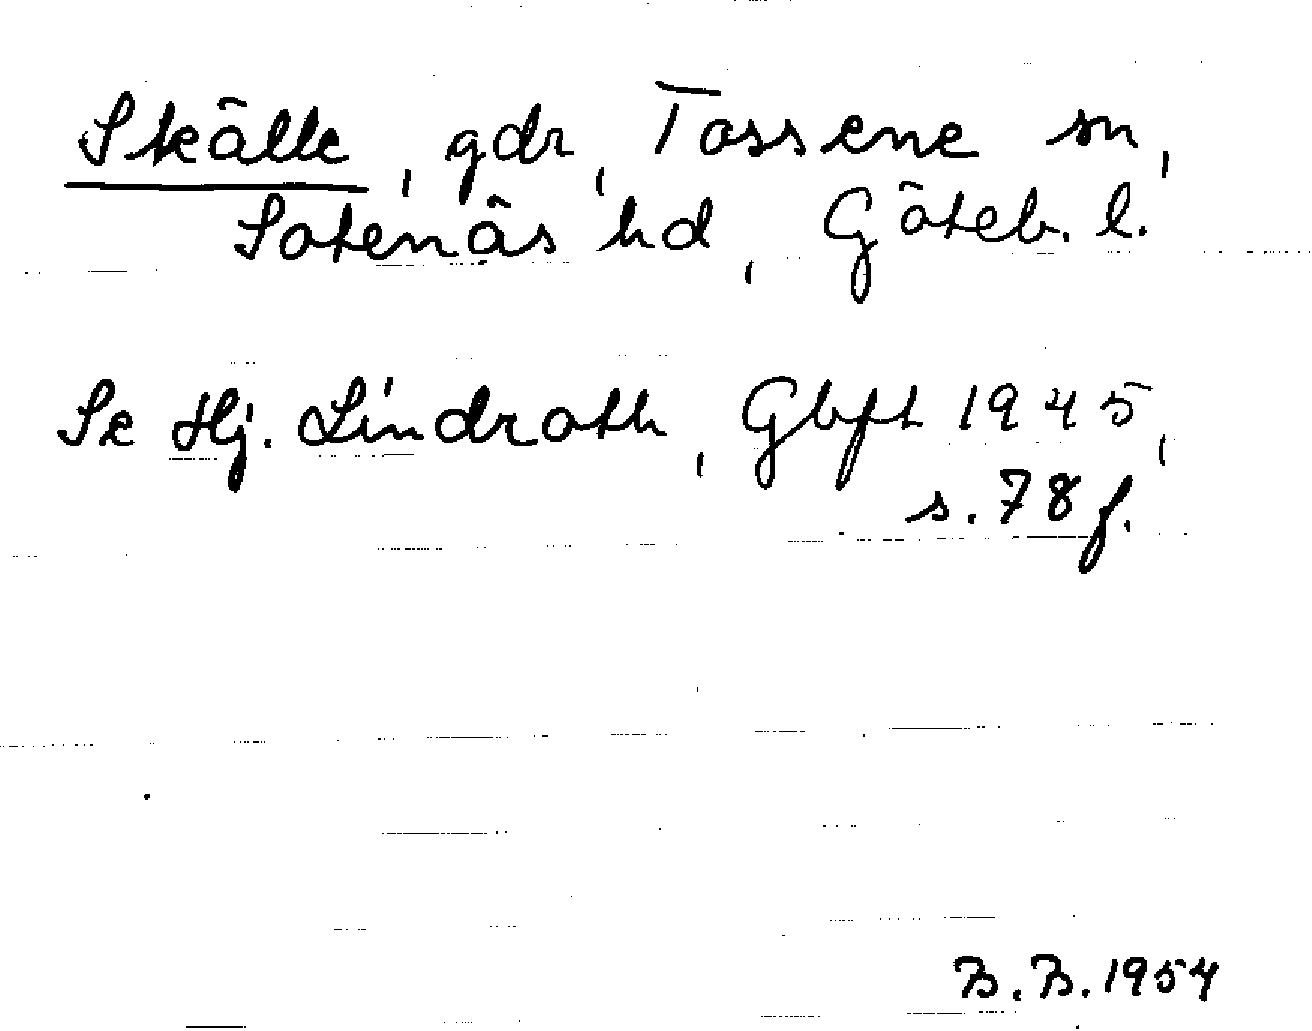 Skälle, gdr, Tossene sn,
Sotenäs hd, Göteb. l.
Se Hj. Lindroth, Gbft 1945,
s. 78 f.
B. B. 1954